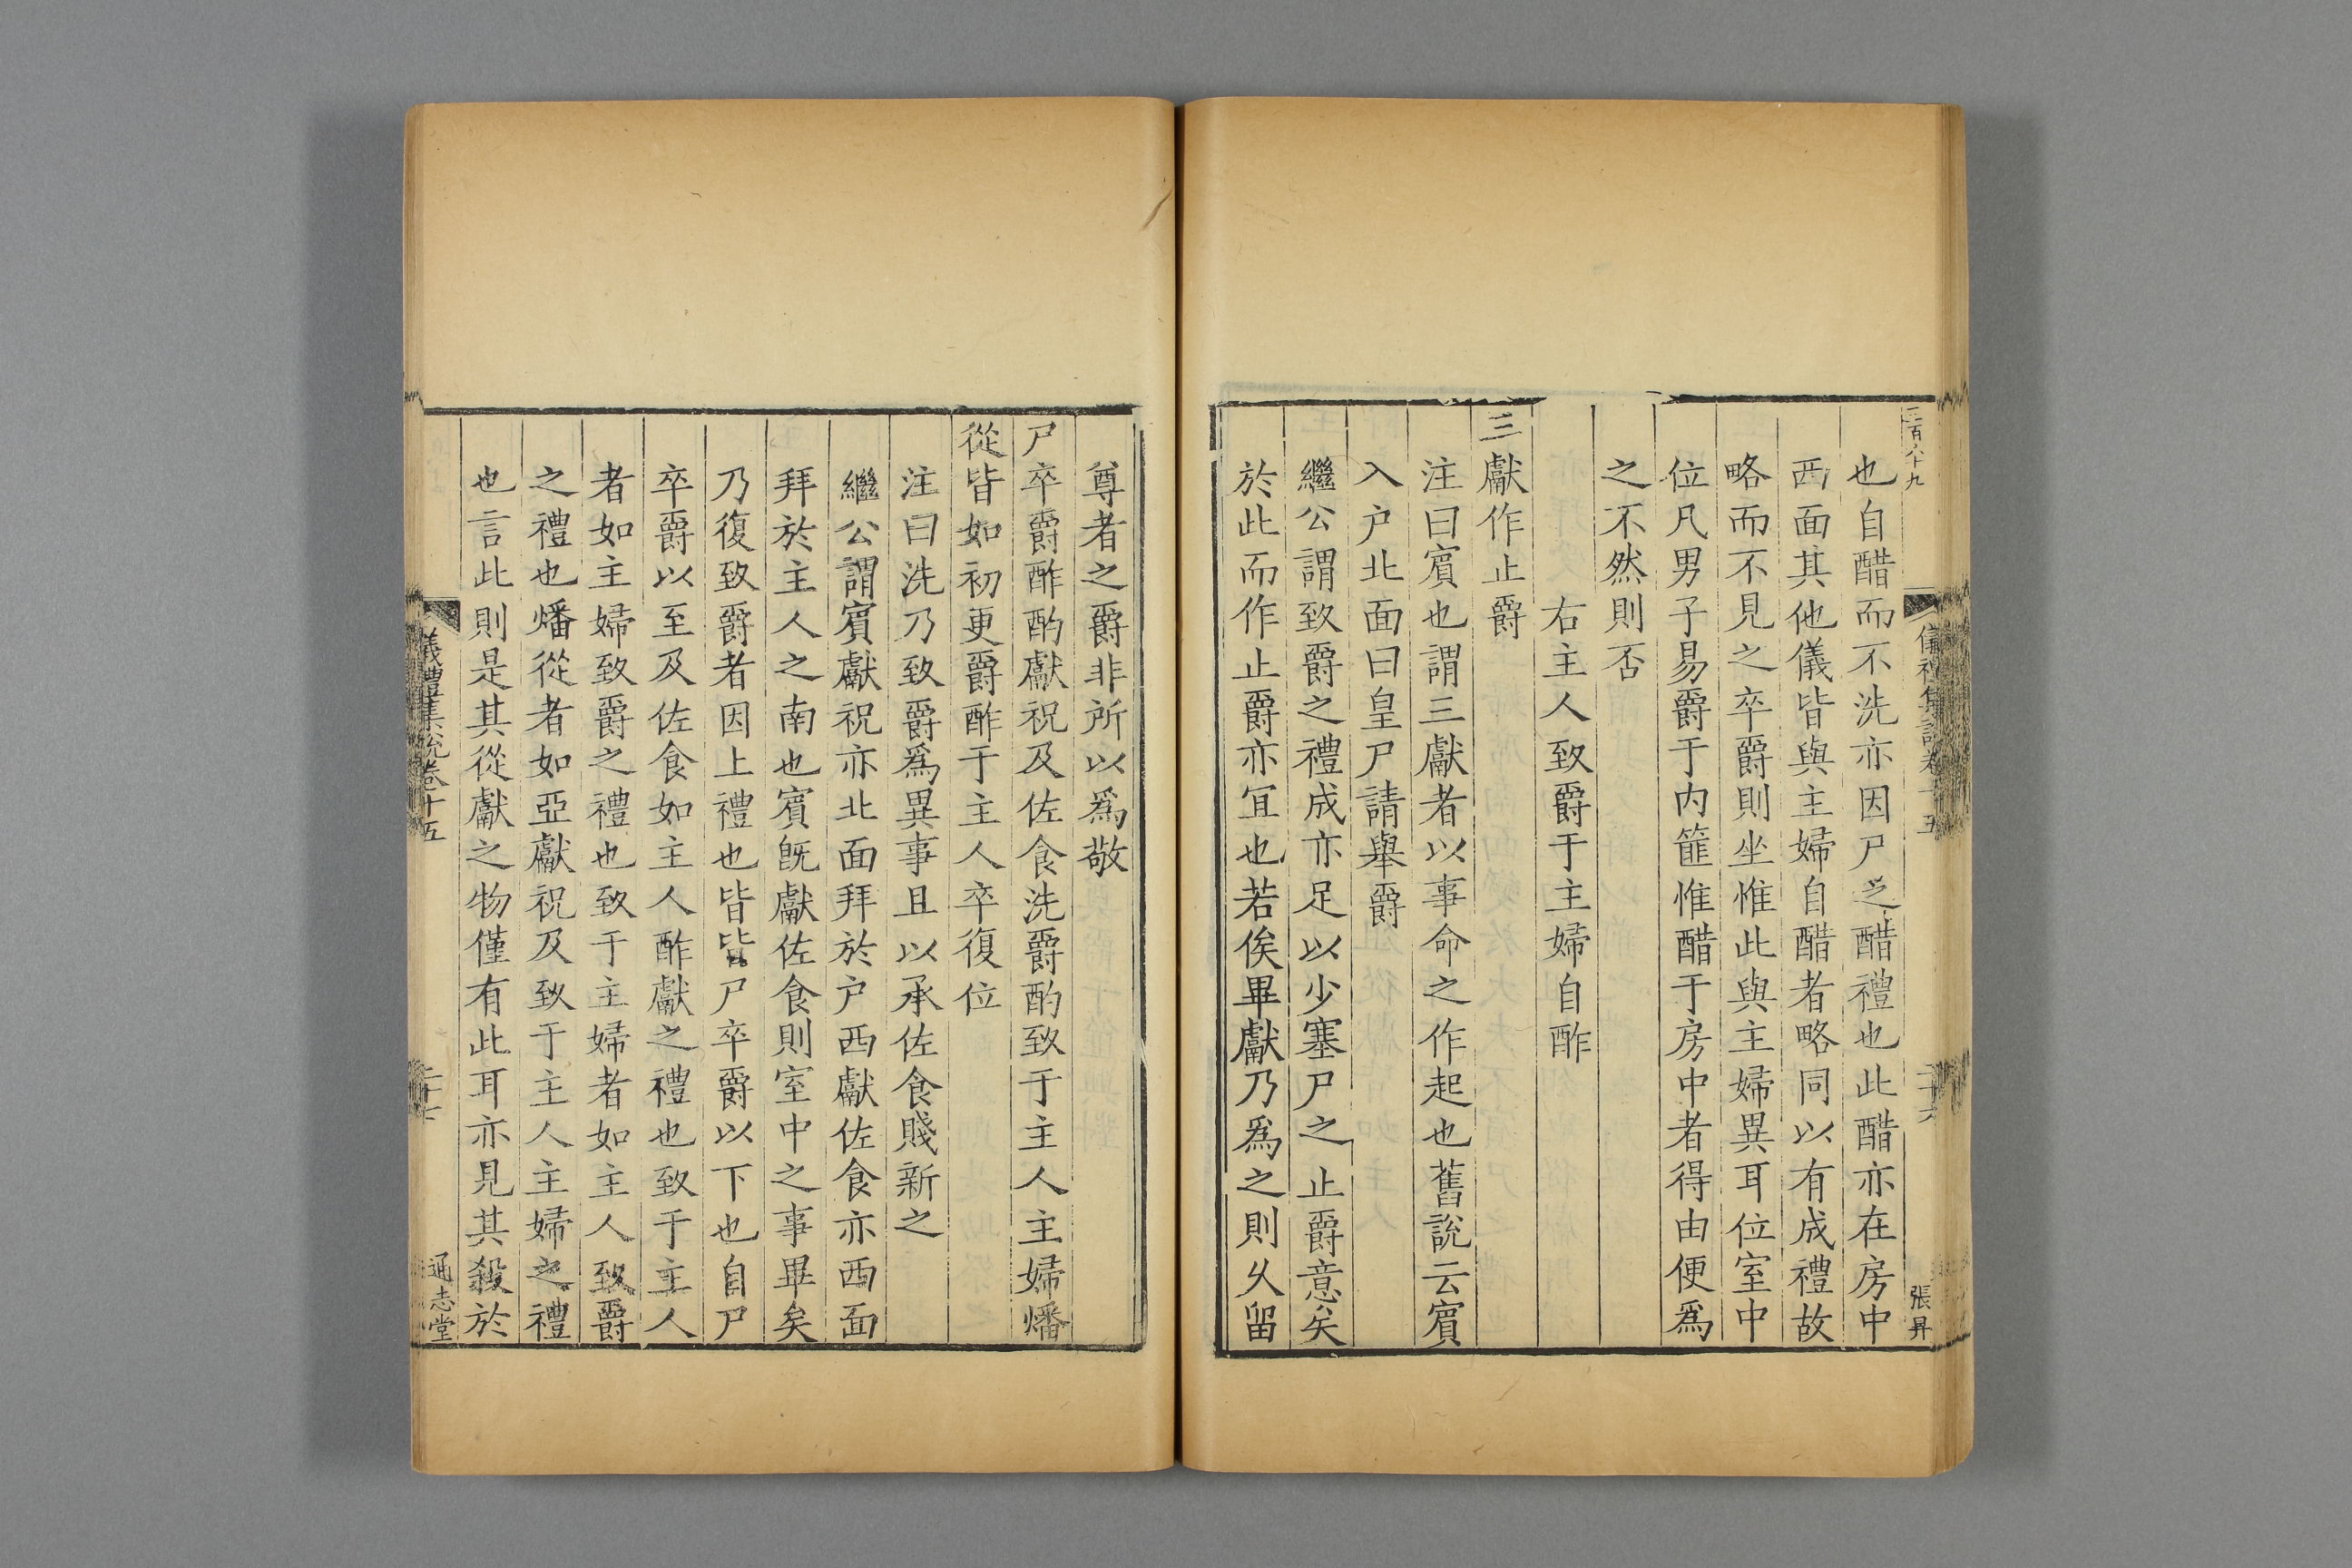 儀禮集說卷十五
二十六
張昇
也自醋而不洗亦因尸之醋禮也此醋亦在房中
西面其他儀皆與主婦自醋者略同以有成禮故
略而不見之卒爵則坐惟此與主婦異耳位室中
位凡男子易爵于内篚惟醋于房中者得由便爲
之不然則否
右主人致爵于主婦自酢
三獻作止爵
注曰賔也謂三獻者以事命之作起也舊說云賔
入户北面曰皇尸請舉爵
繼公謂致爵之禮成亦足以少塞尸之止爵意矣
於此而作止爵亦冝也若俟畢獻乃爲之則乆留
尊者之爵非所以爲敬
尸卒爵酢酌獻祝及佐食洗爵酌致于主人主婦燔
從皆如初更爵酢于主人卒復位
注曰洗乃致爵爲異事且以承佐食賤新之
繼公謂賔獻祝亦北面拜於户西獻佐食亦西面
拜於主人之南也賔旣獻佐食則室中之事畢矣
乃復致爵者因上禮也皆皆尸卒爵以下也自尸
卒爵以至及佐食如主人酢獻之禮也致于主人
者如主婦致爵之禮也致于主婦者如主人致爵
之禮也燔從者如亞獻祝及致于主人主婦之禮
也言此則是其從獻之物僅有此耳亦見其殺於
儀禮集說卷十五
二十七
通志堂